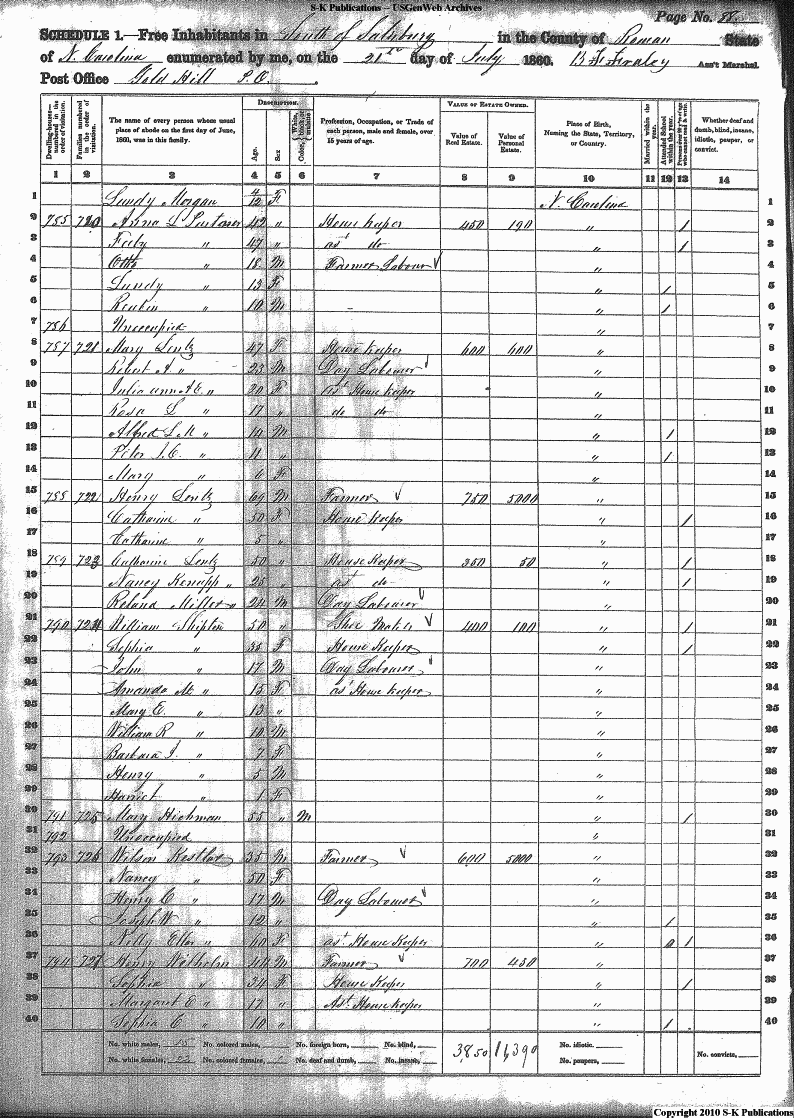 S-K Publications -- USGenWeb Archives
Page No. 88
SCHEDULE 1.—Free Inhabitants in South of Salsbury in the County of Rowan State
of N. Carolina enumerated by me, on the 21st day of July 1860. B F Fraley Ass't Marshal.
Post Office Gold Hill P.O.
Dwelling-houses—numbered in the order of visitation.
Families numbered in the order of visitation.
The name of every person whose usual place of abode on the first day of June, 1860, was in this family.
DESCRIPTION.
Age.
Sex
White, Color, black, or mulatto
Profession, Occupation, or Trade of each person, male and female, over 15 years of age.
VALUE OF ESTATE OWNED.
Value of Real Estate.
Value of Personal Estate.
Place of Birth, Naming the State, Territory, or Country.
Married within the year.
Attended School within the year.
Whether deaf and dumb, blind, insane, idiotic, pauper, or convict.
1 2 3 4 5 6 7 8 9 10 11 12 13 14
1 Lundy Morgan 4/12 F N. Carolina 1
2 785 720 Anna L 42 " House keeper 450 190 " / 2
3 " 47 " ast do " / 3
4 Otho " 18 M Farmer Labour " 4
5 Lundy " 13 F " / 5
6 Reubin " 10 M - " / 6
7 786 Unoccupied " 7
8 787 721 Mary Lentz 47 F House Keeper 600 600 " 8
9 Robert A " 23 M Day Labourer " 9
10 Julia ann A E " 20 F ast House keeper " 10
11 Rosa L " 17 " do do " 11
12 Alfred L M " 14 M " / 12
13 Peter I. C. " 11 " " / 13
14 Mary " 6 F " 14
15 788 722 Henry Lentz 69 M Farmer 750 5000 " 15
16 Catharine " 50 F House Keeper " / 16
17 Catharine " 5 " " 17
18 789 723 Catharine Lentz 50 " House Keeper 350 50 " / 18
19 Nancy " 25 " ast do " / 19
20 Roland Miller " 24 M Day Labourer " 20
21 790 724 William Shipton 50 " Shoe Maker 400 100 " / 21
22 Sophia " 35 F House Keeper " / 22
23 John " 17 M Day Labourer " 23
24 Amanda M " 15 F ast House keeper " 24
25 Mary E. " 13 " " 25
26 William R " 10 M " 26
27 Barbara I. " 7 F " 27
28 Henry " 5 M " 28
29 Harriet " 1 F " 29
30 791 725 Mary Hickman 55 " M " / 30
31 792 Unoccupied " 31
32 793 726 Wilson Kestler 35 M Farmer 600 5000 " 32
33 Nancy " 50 F " 33
34 Henry C " 17 M Day Labourer " 34
35 Joseph W " 12 " " / 35
36 Nelly Eller " 60 F ast House Keeper " / 36
37 794 727 Henry Wilhelm M Farmer 700 450 " 37
38 Sophia " 34 F House Keeper " / 38
39 Margaret E " 17 " Ast House keeper " 39
40 Sophia C " 10 " " / 40
No. white males, 15 No. colored males, No. foreign born, No. blind, 3,850 11,390 No. idiotic.
No. white females, No. colored females, No. deaf and dumb, No. insane, No. paupers, No. convicts,
Copyright 2010 S-K Publications